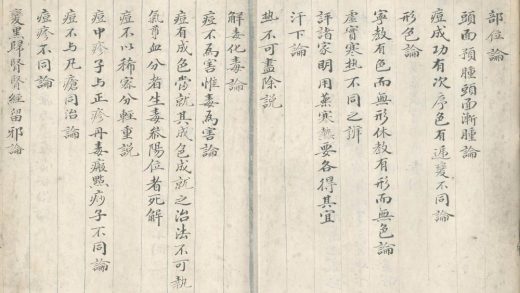 部位論
頭面預腫頭面漸腫論
痘成功有次序色有遞變不同論
形色論
寧教有色而無形休教有形而無色論
虛實寒热不同之辨
評諸家明用藥寒熱要各得其宜
汗下論
热不可盡除說
解毒化毒論
痘不為害惟毒為害論
痘有成色當就其成色成就之治法不可執
氣尊血分者生毒參陽位者死解
痘不以稀密分輕重說
痘中疹子與正疹丹毒癍㸃痧子不同論
痘不与凡瘡同治論
痘疹不同論
變黑歸腎腎經留邪論